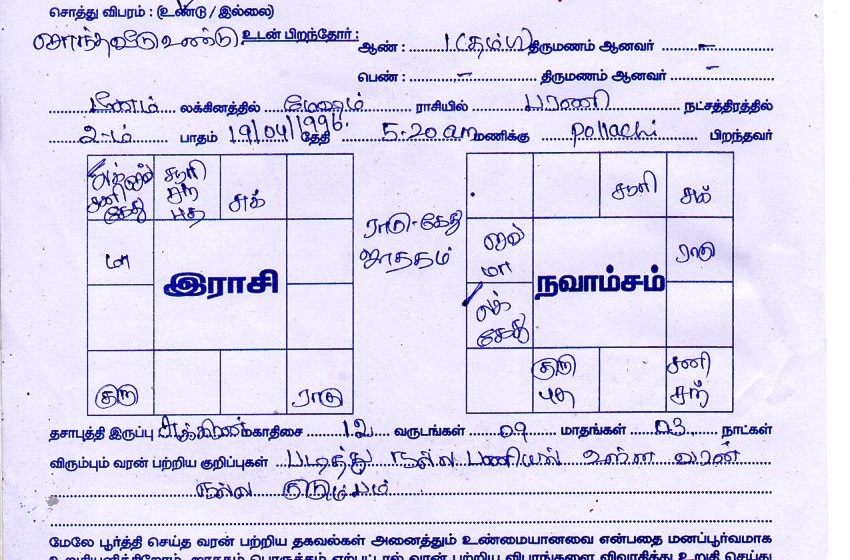 சொத்து விபரம் : (உண்டு / இல்லை)
சொந்தவீடு உண்டு. உடன் பிறந்தோர் : ஆண் : 1 (தம்பி) திருமணம் ஆனவர் –
பெண் : – திருமணம் ஆனவர் –
மீனம் லக்கினத்தில் மேஷம் ராசியில் பரணி நட்சத்திரத்தில்
2-ம் பாதம் 19/04/1996 தேதி 5.20 am மணிக்கு pollachi பிறந்தவர்
சனி
கேது
சுக்
மா
குரு
ராகு
இராசி
ராகு-கேது
ஜாதகம்
மா
லக்
கேது
குரு
புத
ராகு
சனி
நவாம்சம்
தசாபுத்தி இருப்பு சுக்கிரன் மகாதிசை 12 வருடங்கள் 09 மாதங்கள் 03 நாட்கள்
விரும்பும் வரன் பற்றிய குறிப்புகள் படித்து நல்ல பணியில் உள்ள வரன்
நல்ல குடும்பம்
மேலே பூர்த்தி செய்த வரன் பற்றிய தகவல்கள் அனைத்தும் உண்மையானவை என்பதை மனப்பூர்வமாக